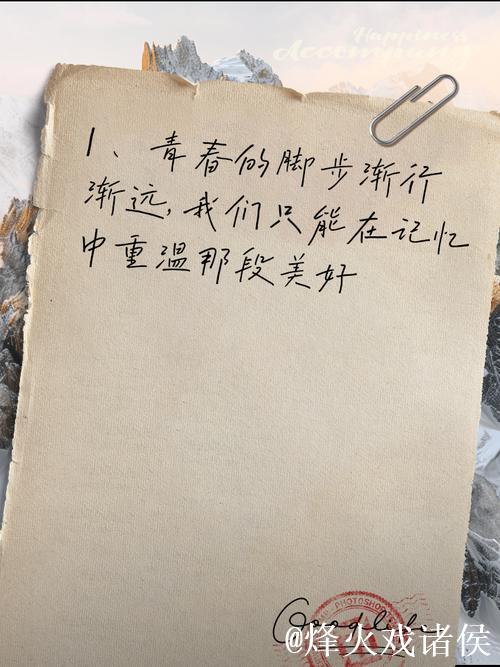 Happiness
Accompany
1、青春的脚步渐行
渐远,我们只能在记忆
中重温那段美好
PHOTOSHOP
Good life
@烽火戏诸侯